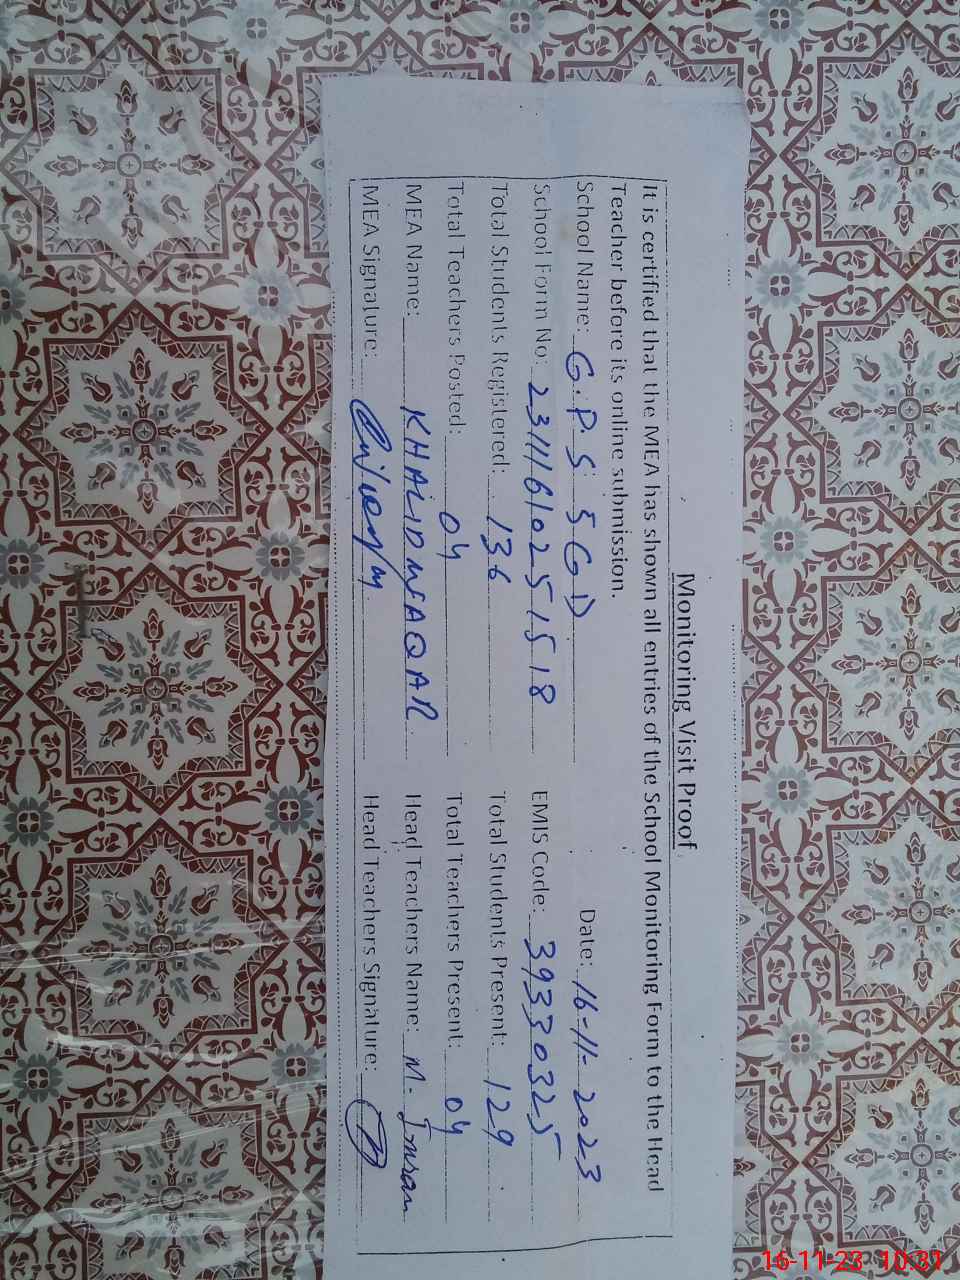 Monitoring Visit Proof
It is certified that the MEA has shown all entries of the School Monitoring Form to the Head
Teacher before its online submission.
School Name: G.P.S 5 G.D Date: 16-11-2023
School Form No: 2311161025 1518 EMIS Code: 39330325
Total Students Registered: 136 Total Students Present: 129
Total Teachers Posted: 04 Total Teachers Present: 04
MEA Name: KHALID WAQAR Head Teachers Name: M. Imran
MEA Signature: Head Teachers Signature:
16-11-23 10:31